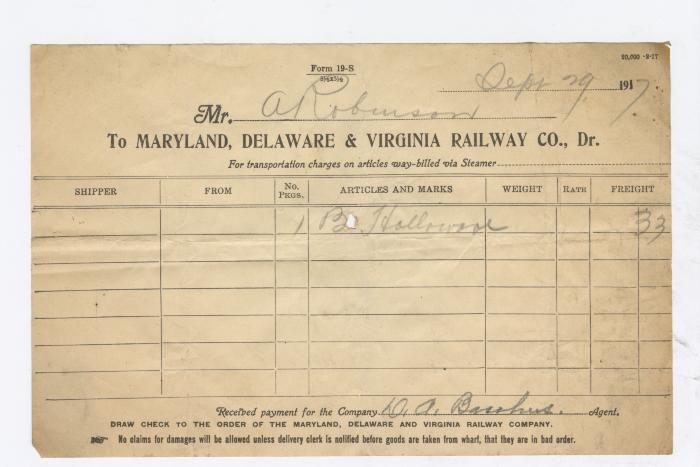 Form 19-S
8½x5½
20,000 -2-17
Sept 29, 1917.
Mr. A Robinson
To MARYLAND, DELAWARE & VIRGINIA RAILWAY CO., Dr.
For transportation charges on articles way-billed via Steamer
SHIPPER FROM No. PKGS. ARTICLES AND MARKS WEIGHT RATE FREIGHT
1 Holloware 33
Received payment for the Company D. A. Agent.
DRAW CHECK TO THE ORDER OF THE MARYLAND, DELAWARE AND VIRGINIA RAILWAY COMPANY.
No claims for damages will be allowed unless delivery clerk is notified before goods are taken from wharf, that they are in bad order.